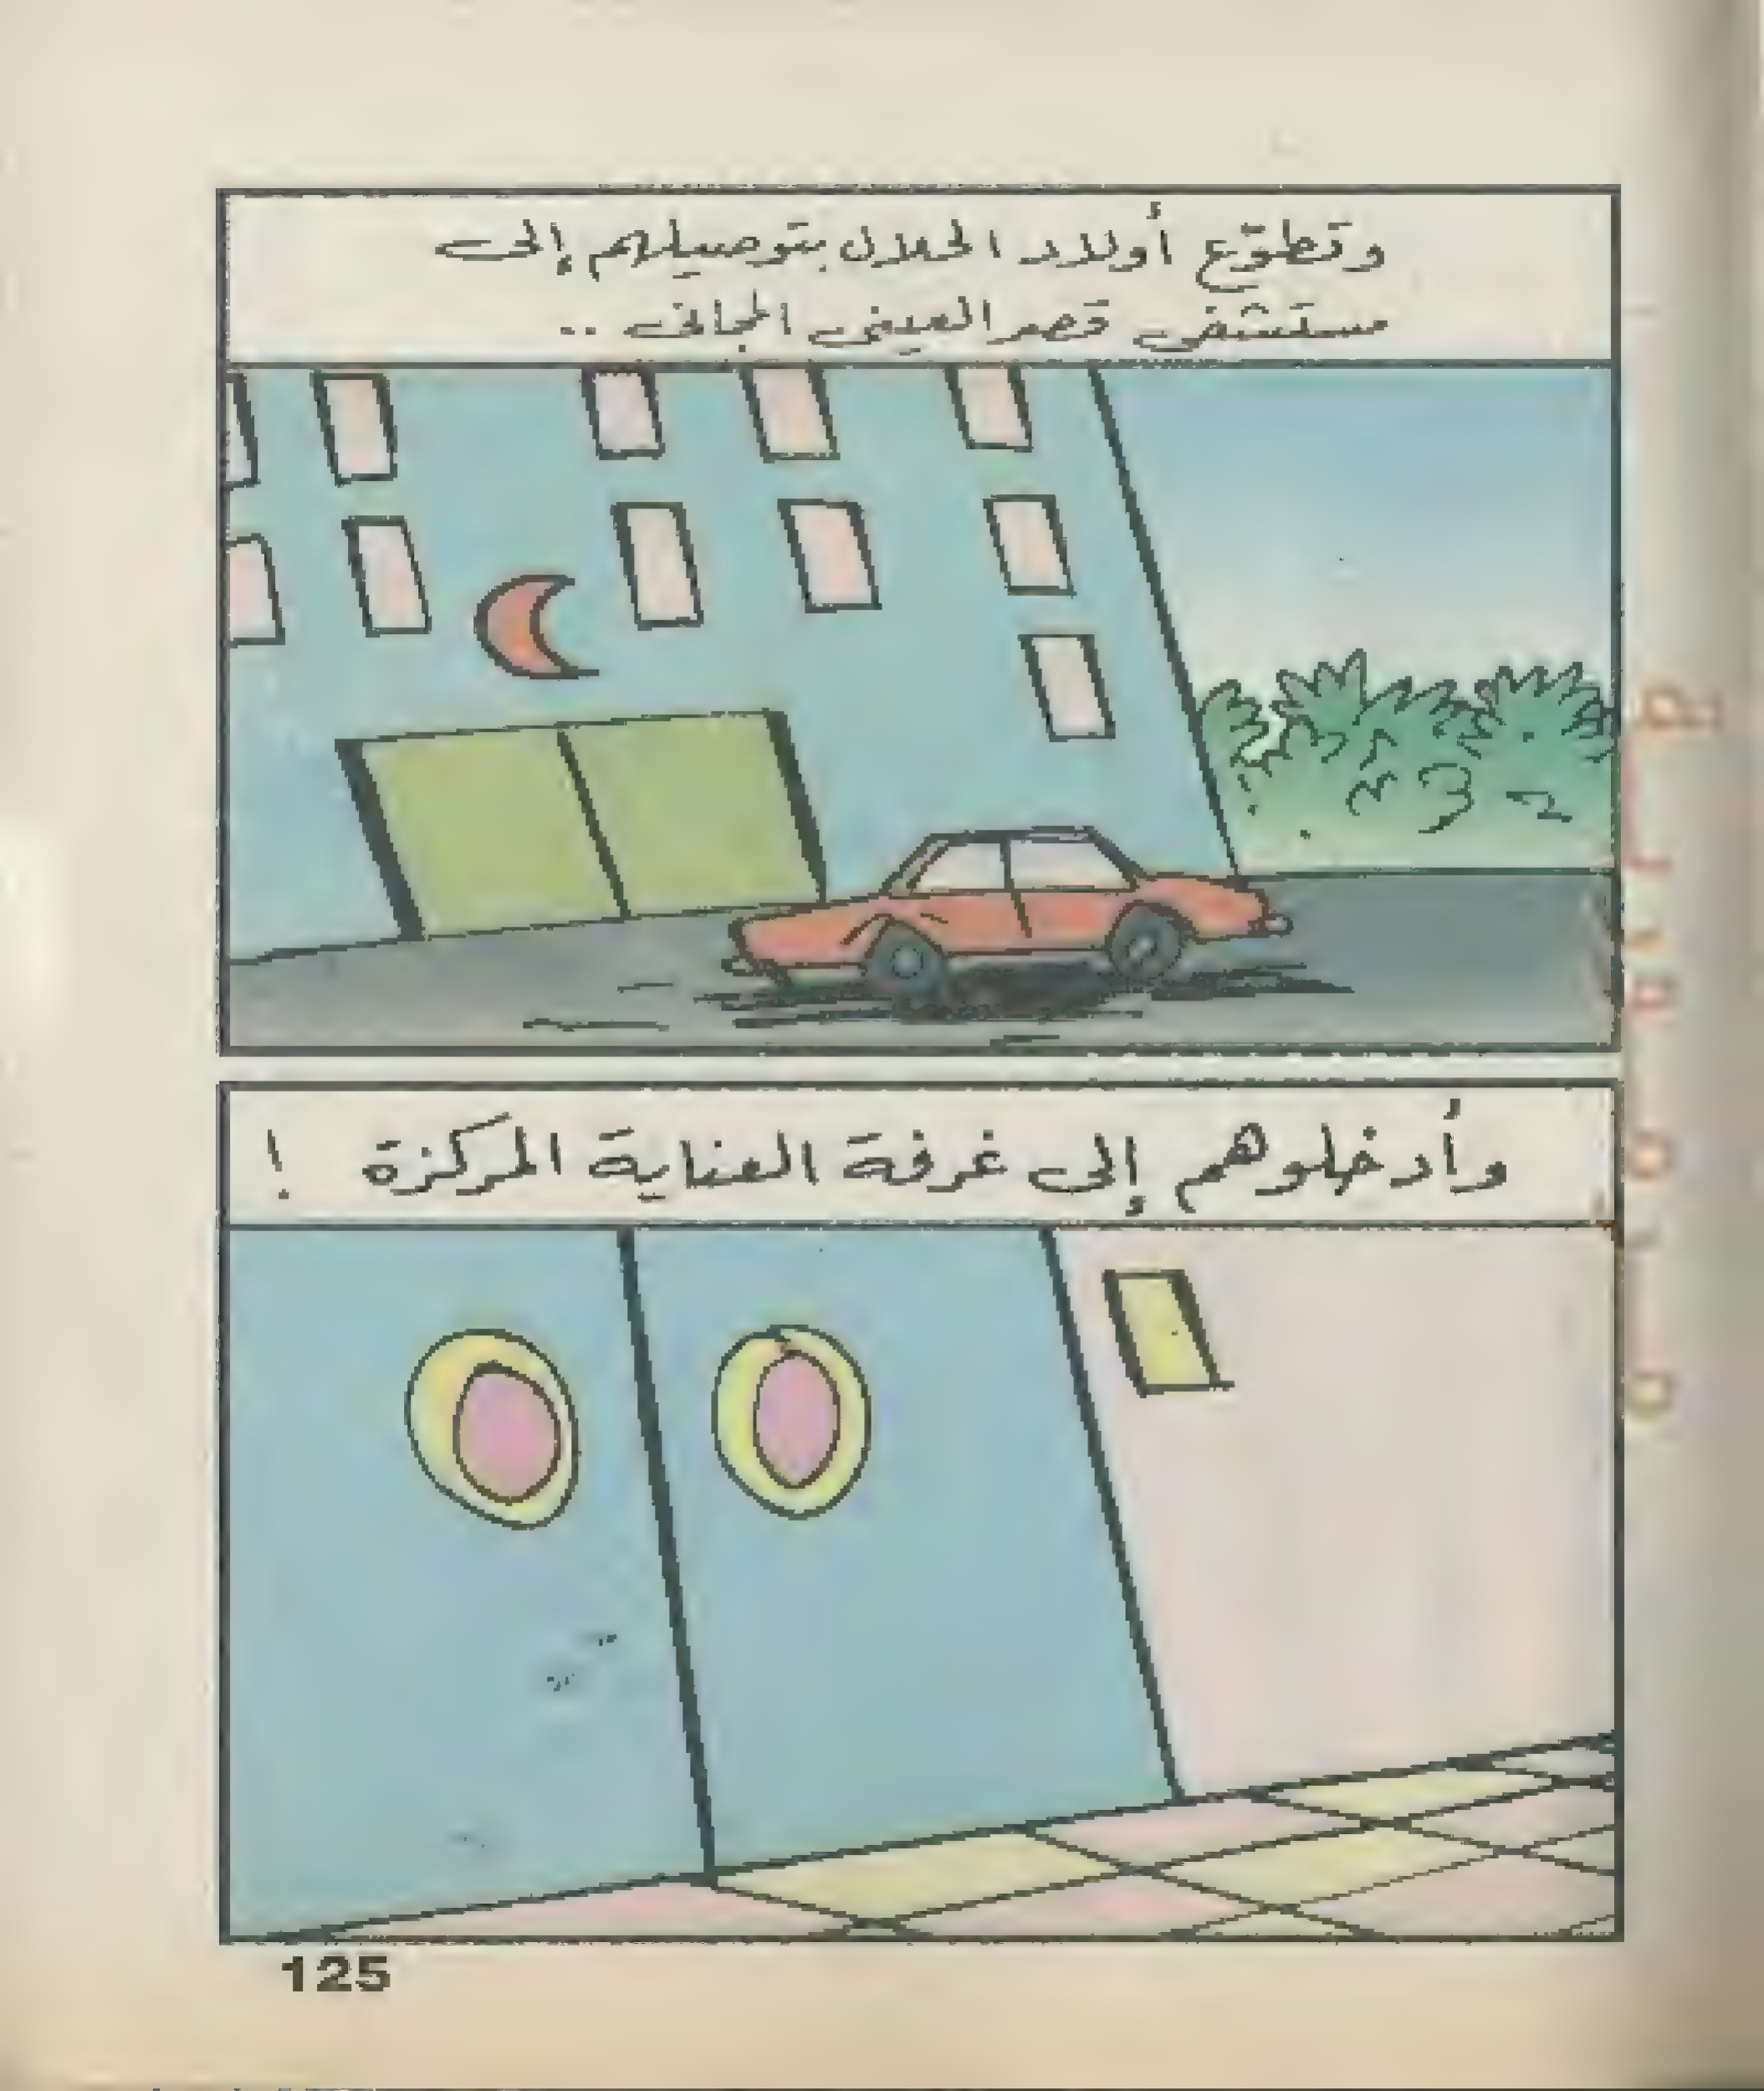 وتطوّع أولاد الحلال بتوصيلهم إلى
مستشفى قصر العينى المجانى ..
وأدخلوهم إلى غرفة العناية المركزة !
125